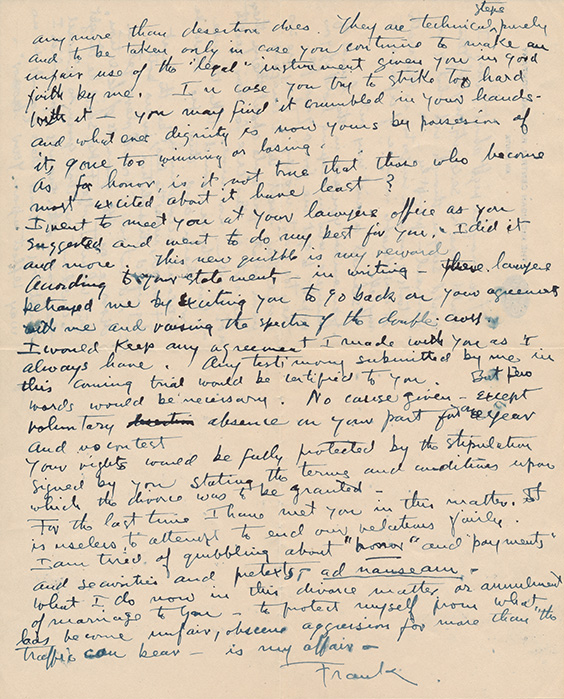 steps
any more than desertion does. They are technical, purely
and to be taken only in case you continue to make an
unfair use of the "legal" instrument given you in good
faith by me. In case you try to strike too hard
with it – you may find it crumbled in your hands –
and what ever dignity is now yours by possession of
it, gone too winning or losing.
As for honor, is it not true that those who become
most excited about it have least?
I went to meet you at your lawyers office as you
suggested and went to do my best for you. I did it
and more. This new quibble is my reward.
According to your statement – in writing – lawyers
betrayed me by exciting you to go back on your agreement
with me and raising the spectre of the double-cross.
I would keep any agreement I made with you as I
always have. Any testimony submitted by me in
this coming trial would be certified to you. But few
words would be necessary. No cause given – except
voluntary desertion absence on your part for one year
and no contest
Your rights would be fully protected by the stipulation
signed by you stating the terms and conditions upon
which the divorce was to be granted –
For the last time I have met you in this matter. It
is useless to attempt to end our relations fairly.
I am tired of quibbling about "honor" and "payments"
and securities and pretexts, ad nauseam –
What I do now in this divorce matter or annulment
of marriage to you – to protect myself from what
has become unfair, obscene aggression for more than "the
traffic can bear – is my affair –
Frank